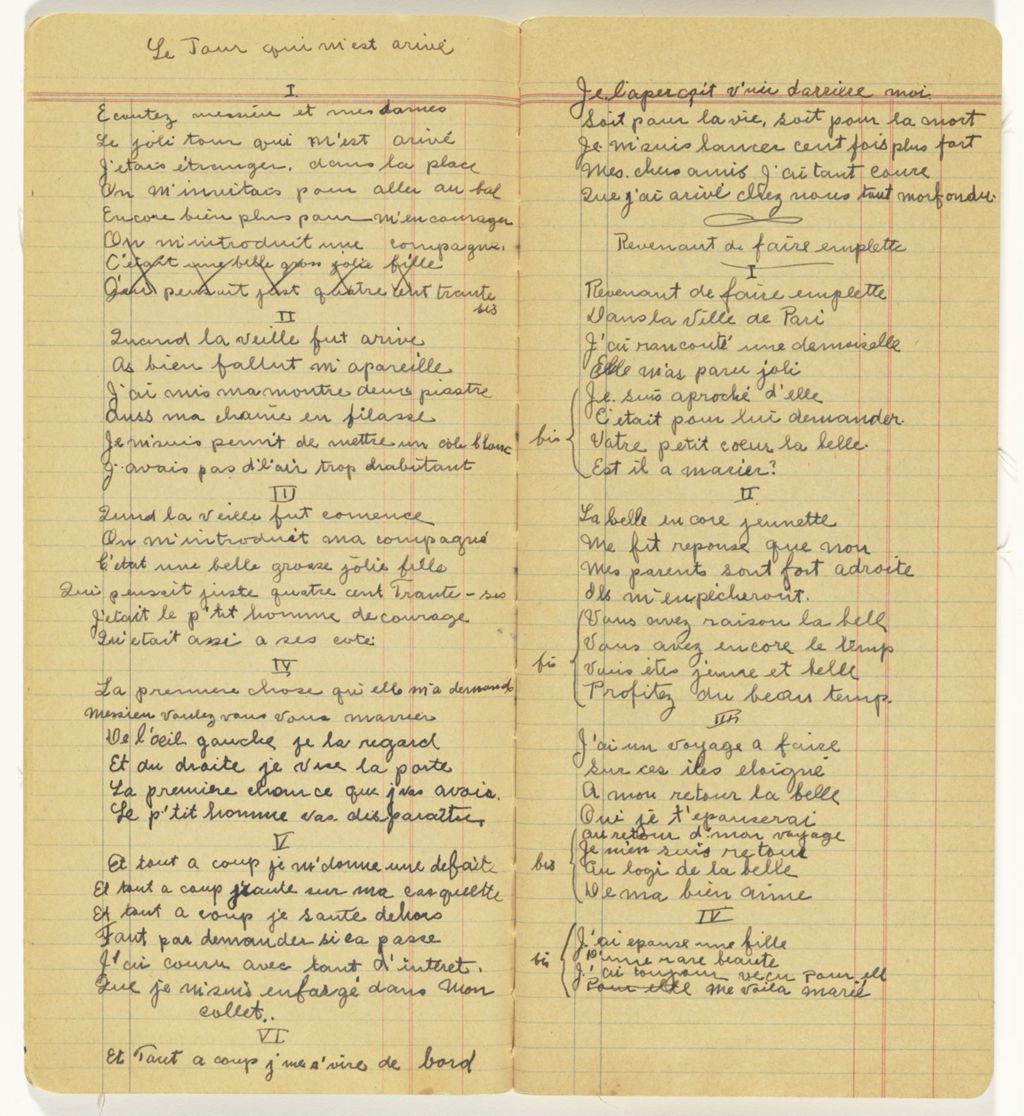 Le Tour qui m'est arivé
I
Ecoutez messieu et mesdames
Le joli tour qui m'est arivé
J'etais étranger, dans la place
On m'invitais pour aller au bal
Encore bien plus pour m'encourager
On m'introduit une compagne,
C'était une belle gross jolie fille
Qui pensait just quatre cent trante
bis
II
Quand la veille fut arivé
As bien fallut m'apareille
J'ai mis ma montre deux piastre
Auss ma chaine en filasse
Je m'suis permit de mettre un cole blanc
J'avais pas d'l'air trop drabitant
III
Quand la veille fut comence
On m'introduit ma compagné
C'etait une belle grosse jolie fille
Qui pensait juste quatre cent Trante - sis
J'etait le p'tit homme de courage
Qu'etait assi a ses coté
IV
La premiere chose qu'elle m'a demandé
Messieu voulez vous vous marrier
De l'œil gauche je la regard
Et du droite je vise la porte
La premiere chance que j'vas avoir.
Le p'tit homme vas disparaître
V
Et tout a coup je m'donne une defaite
Et tout a coup j'saute sur ma casquette
Et tout a coup je saute dehors
Faut pas demander si ca passe
J'ai couru avec tant d'interet.
Que je m'suis enfargé dans mon
collet..
VI
Et Tout a coup j'me s'vire de bord
Je l'aperçoit v'nir darriere moi.
Soit pour la vie, soit pour la mort
Je m'suis lancer cent fois plus fort
Mes chers amis J'ai tant couru
Que j'ai arivé chez nous tout morfondu.
Revenant de faire emplette
I
Revenant de faire emplette
Dans la Ville de Pari
J'ai rancouté une demoiselle
Elle m'as paru joli
Je suis aproché d'elle
C'etait pour lui demander
bis
Votre petit coeur la belle
Est il a marier?
II
La belle encore jeunette
Me fit reponse que non
Mes parents sont fort adroite
Ils m'enpécheront.
Vous avez raison la bell
Vous avez encore le temp
bis
Vous êtes jeune et belle
Profitez du beau temp.
III
J'ai un voyage a faire
Sur ces iles eloigné
A mon retour la belle
Oui je t'epouserai
au retour d'mon voyage
Je m'en suis retour
bis
Au logi de la belle
De ma bien aime
IV
J'ai epouse une fille
D'une rare beaute
bis
J'ai toujour vecu pour ell
Pour elle me voila marié